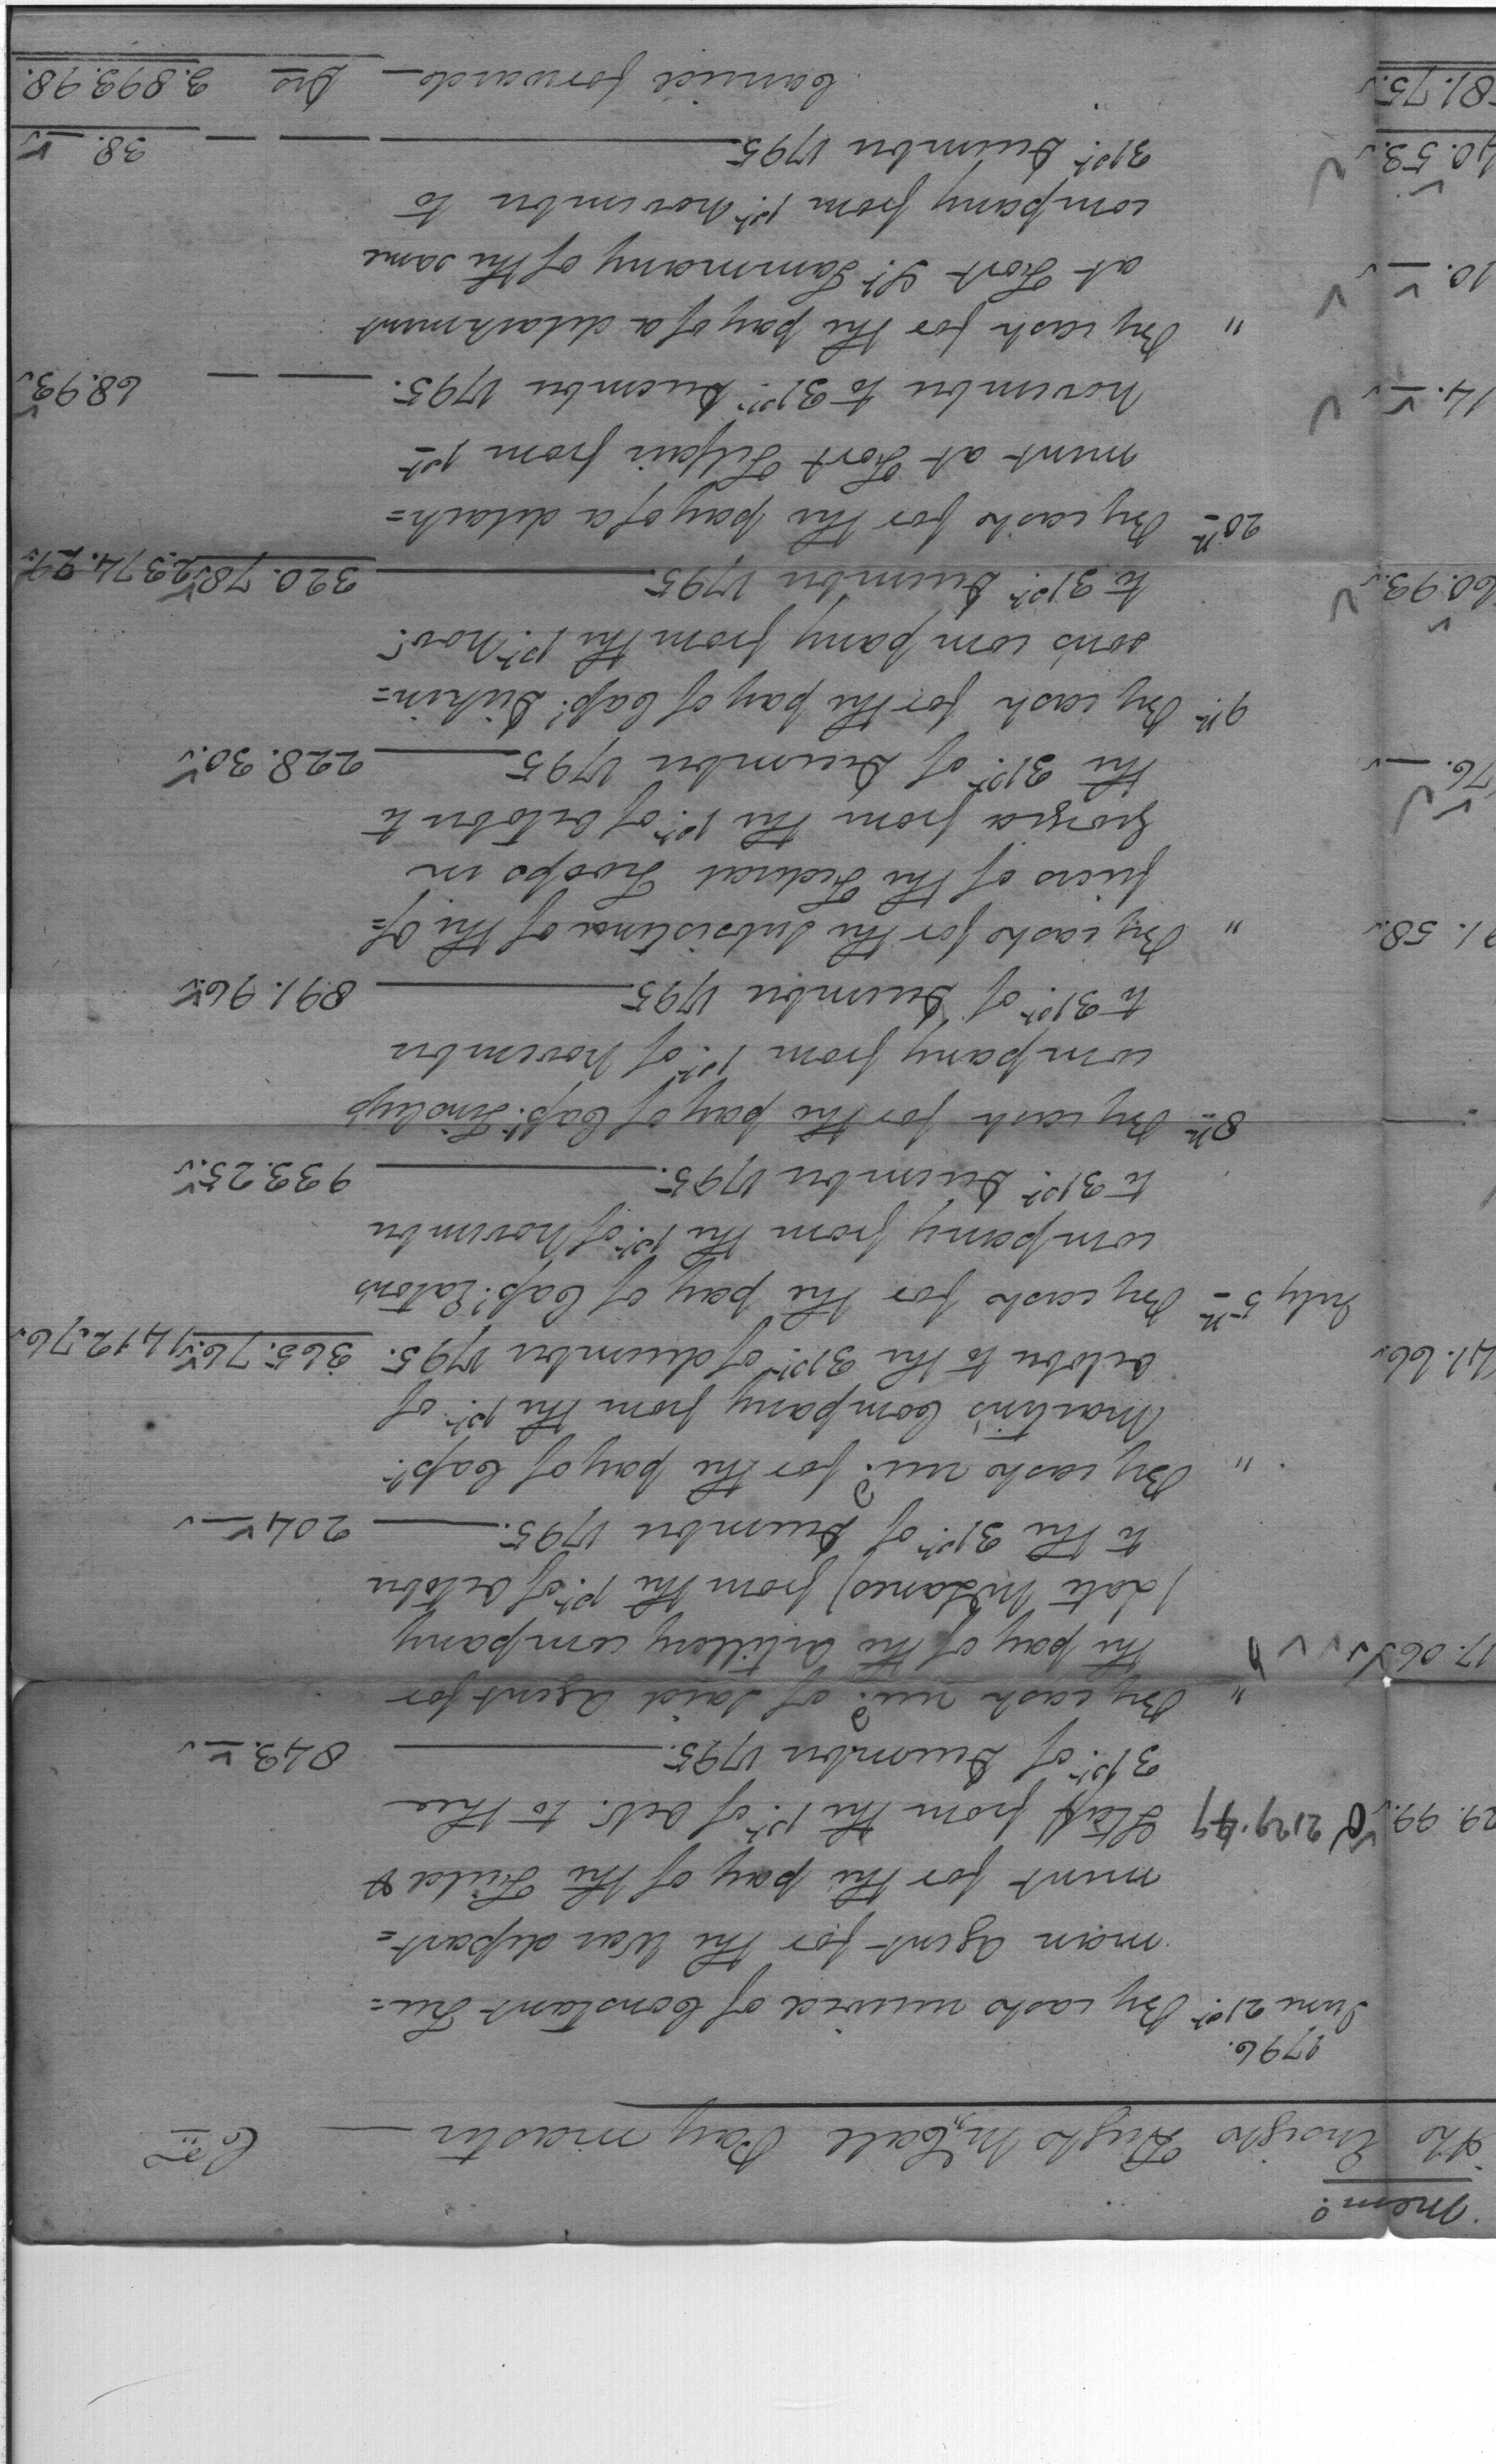 Mem.o
The Ensign Hugh McCall Pay master — Cr.
1796.
June 21st. By cash received of Constant Free=
man Agent for the War depart=
ment for the pay of the Field &
29.99. 2129.49 Staff from the 1st. of Oct. to the
31st. of December 1795. 843.—
" By cash recd. of said Agent for
17.06 the pay of the Artillery company
(late McLanes) from the 1st. of October
to the 31st. of December 1795. 204.—
" By cash recd. for the pay of Capt.
Martin's Company from the 1st. of
41.66 October to the 31st. of december 1795. 365.76 1412.76
July 5th By cash for the pay of Capt. Eaton's
company from the 1st. of November
to 31st. December 1795. 933.25
8th By cash for the pay of Capt. Tinsley's
company from 1st. of November
to 31st. of December 1795 891.96
91.58 " By cash for the Subsistence of the Of=
ficers of the Federal Troops in
Georgia from the 1st. of October to
76.— the 31st. of December 1795 228.30
9th By cash for the pay of Capt. Dickin=
son's company from the 1st. Novr.
60.93 to 31st. December 1795 320.78 2374.29
20th By cash for the pay of a detach=
ment at Fort Fidius from 1st
14.— November to 31st. December 1795. — — 68.93
" By cash for the pay of a detachment
10.— at Fort St. Tammany of the same
company from 1st. November to
40.53 31st. December 1795 — — 38.—
81.75 Carried forward — Drs 3.893.98.